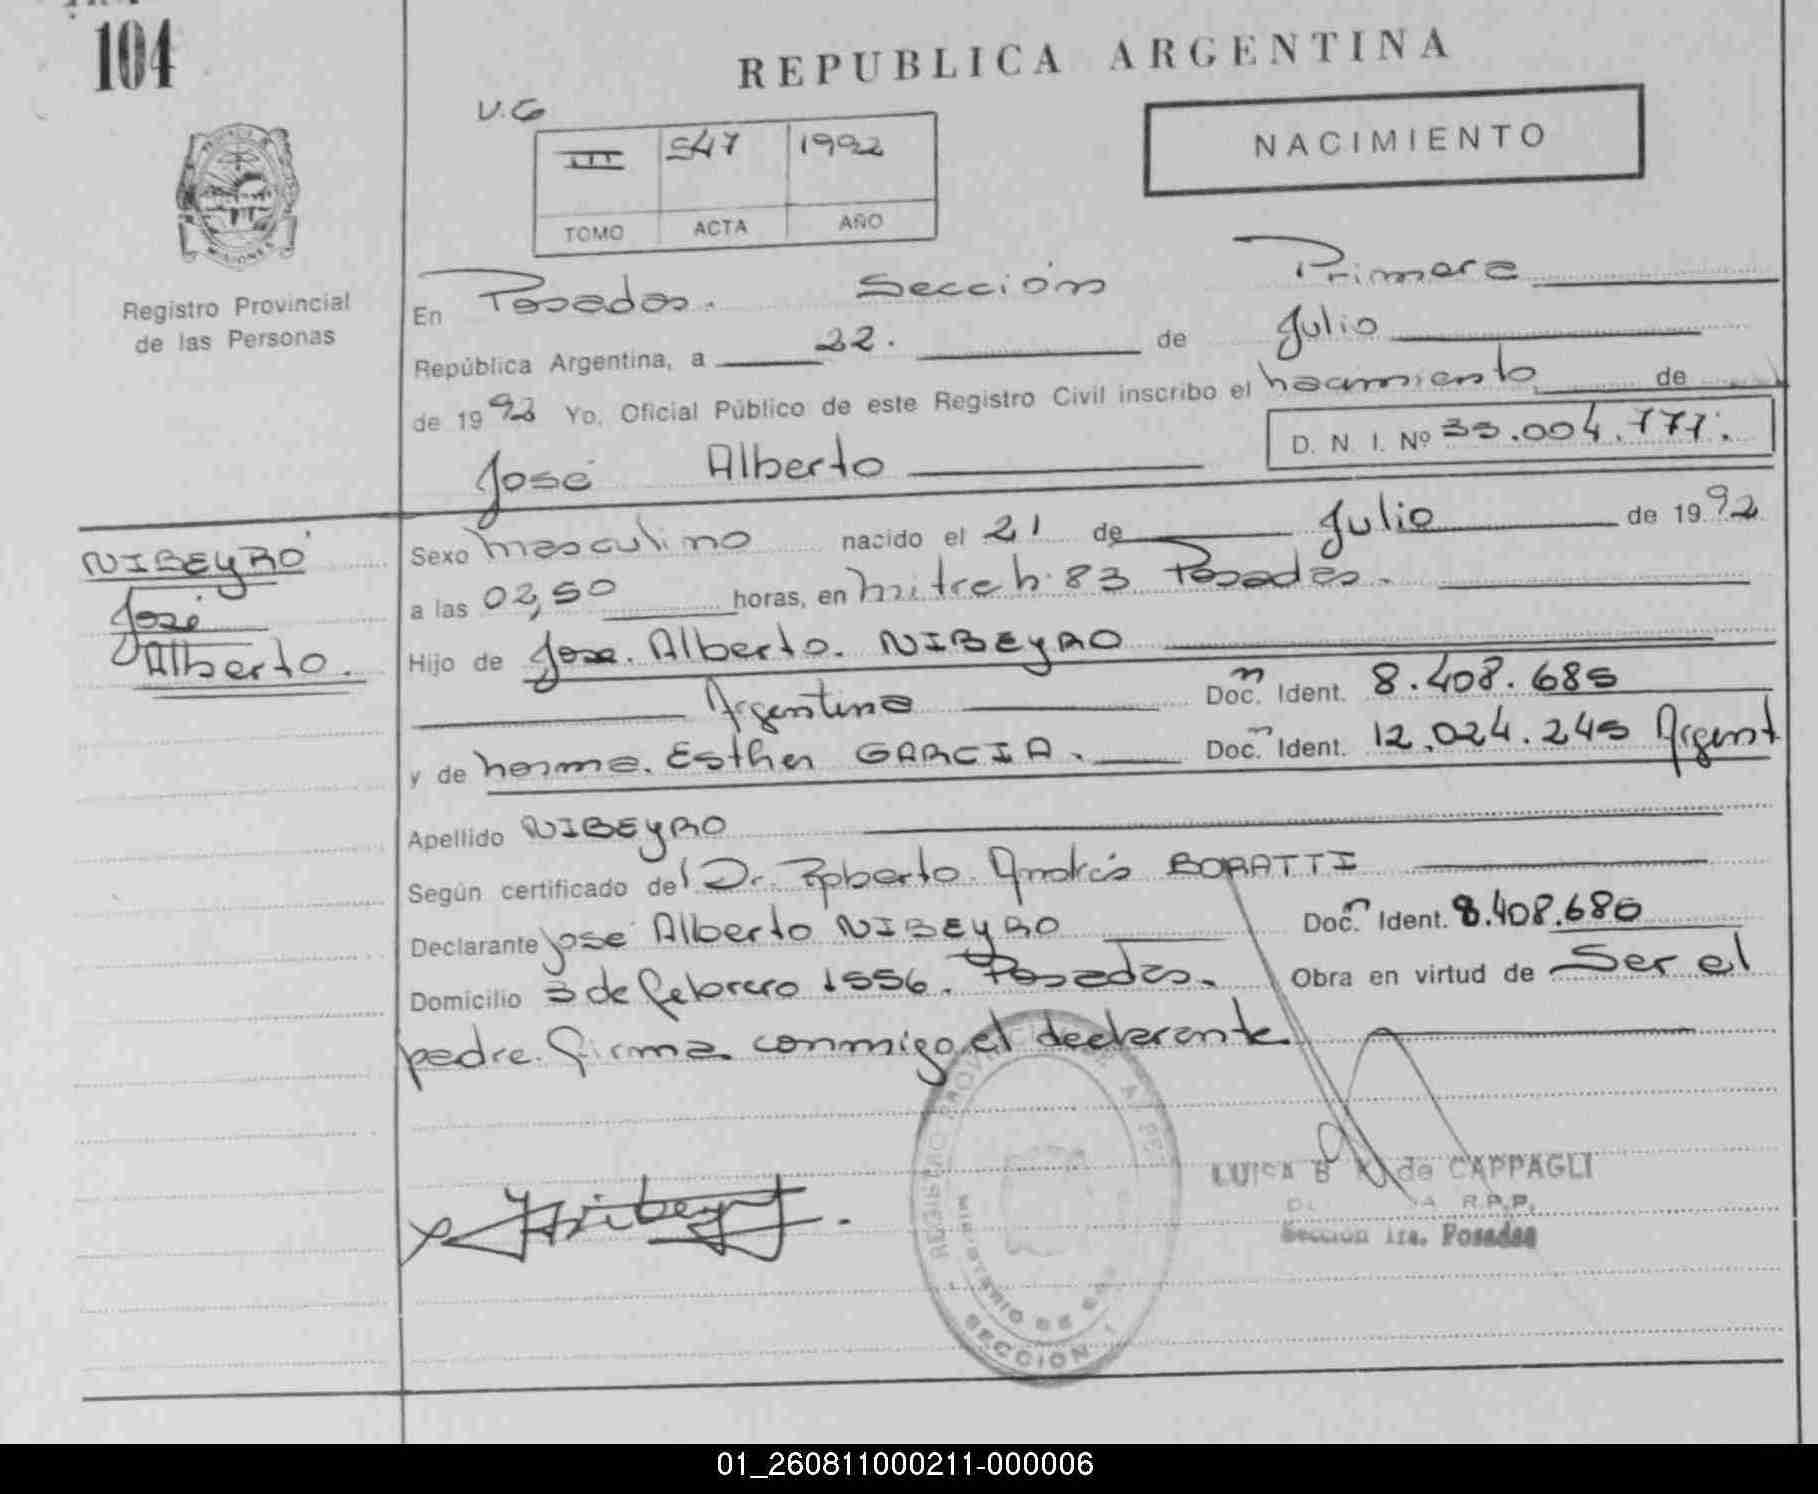 104
REPUBLICA ARGENTINA
V.G
NACIMIENTO
III 547 1992
TOMO ACTA AÑO
MISIONES
Registro Provincial
de las Personas
En Posadas. Sección Primera
República Argentina, a 22. de Julio
de 1992 Yo, Oficial Público de este Registro Civil inscribo el nacimiento de
José Alberto D. N. I. Nº 33.004.777.
NIBEYRO
José
Alberto.
Sexo masculino nacido el 21 de Julio de 1992
a las 02,50 horas, en mitre h. 83 Posadas.
Hijo de Jose. Alberto. NIBEYRO
Argentina Doc. Ident. 8.408.685
y de norma. Esther GARCIA. Doc. Ident. 12.024.245 Argent
Apellido NIBEYRO
Según certificado del Dr. Roberto Andrés BORATTI
Declarante José Alberto NIBEYRO Doc. Ident. 8.408.680
Domicilio 3 de febrero 1556. Posadas. Obra en virtud de Ser el
padre. firma conmigo el declarante
LUISA B de CAPPAGLI
R.P.P.
Sección 1ra. Posadas
REGISTRO PROVINCIAL DE
MINISTERIO DE
SECCION 1
01_260811000211-000006